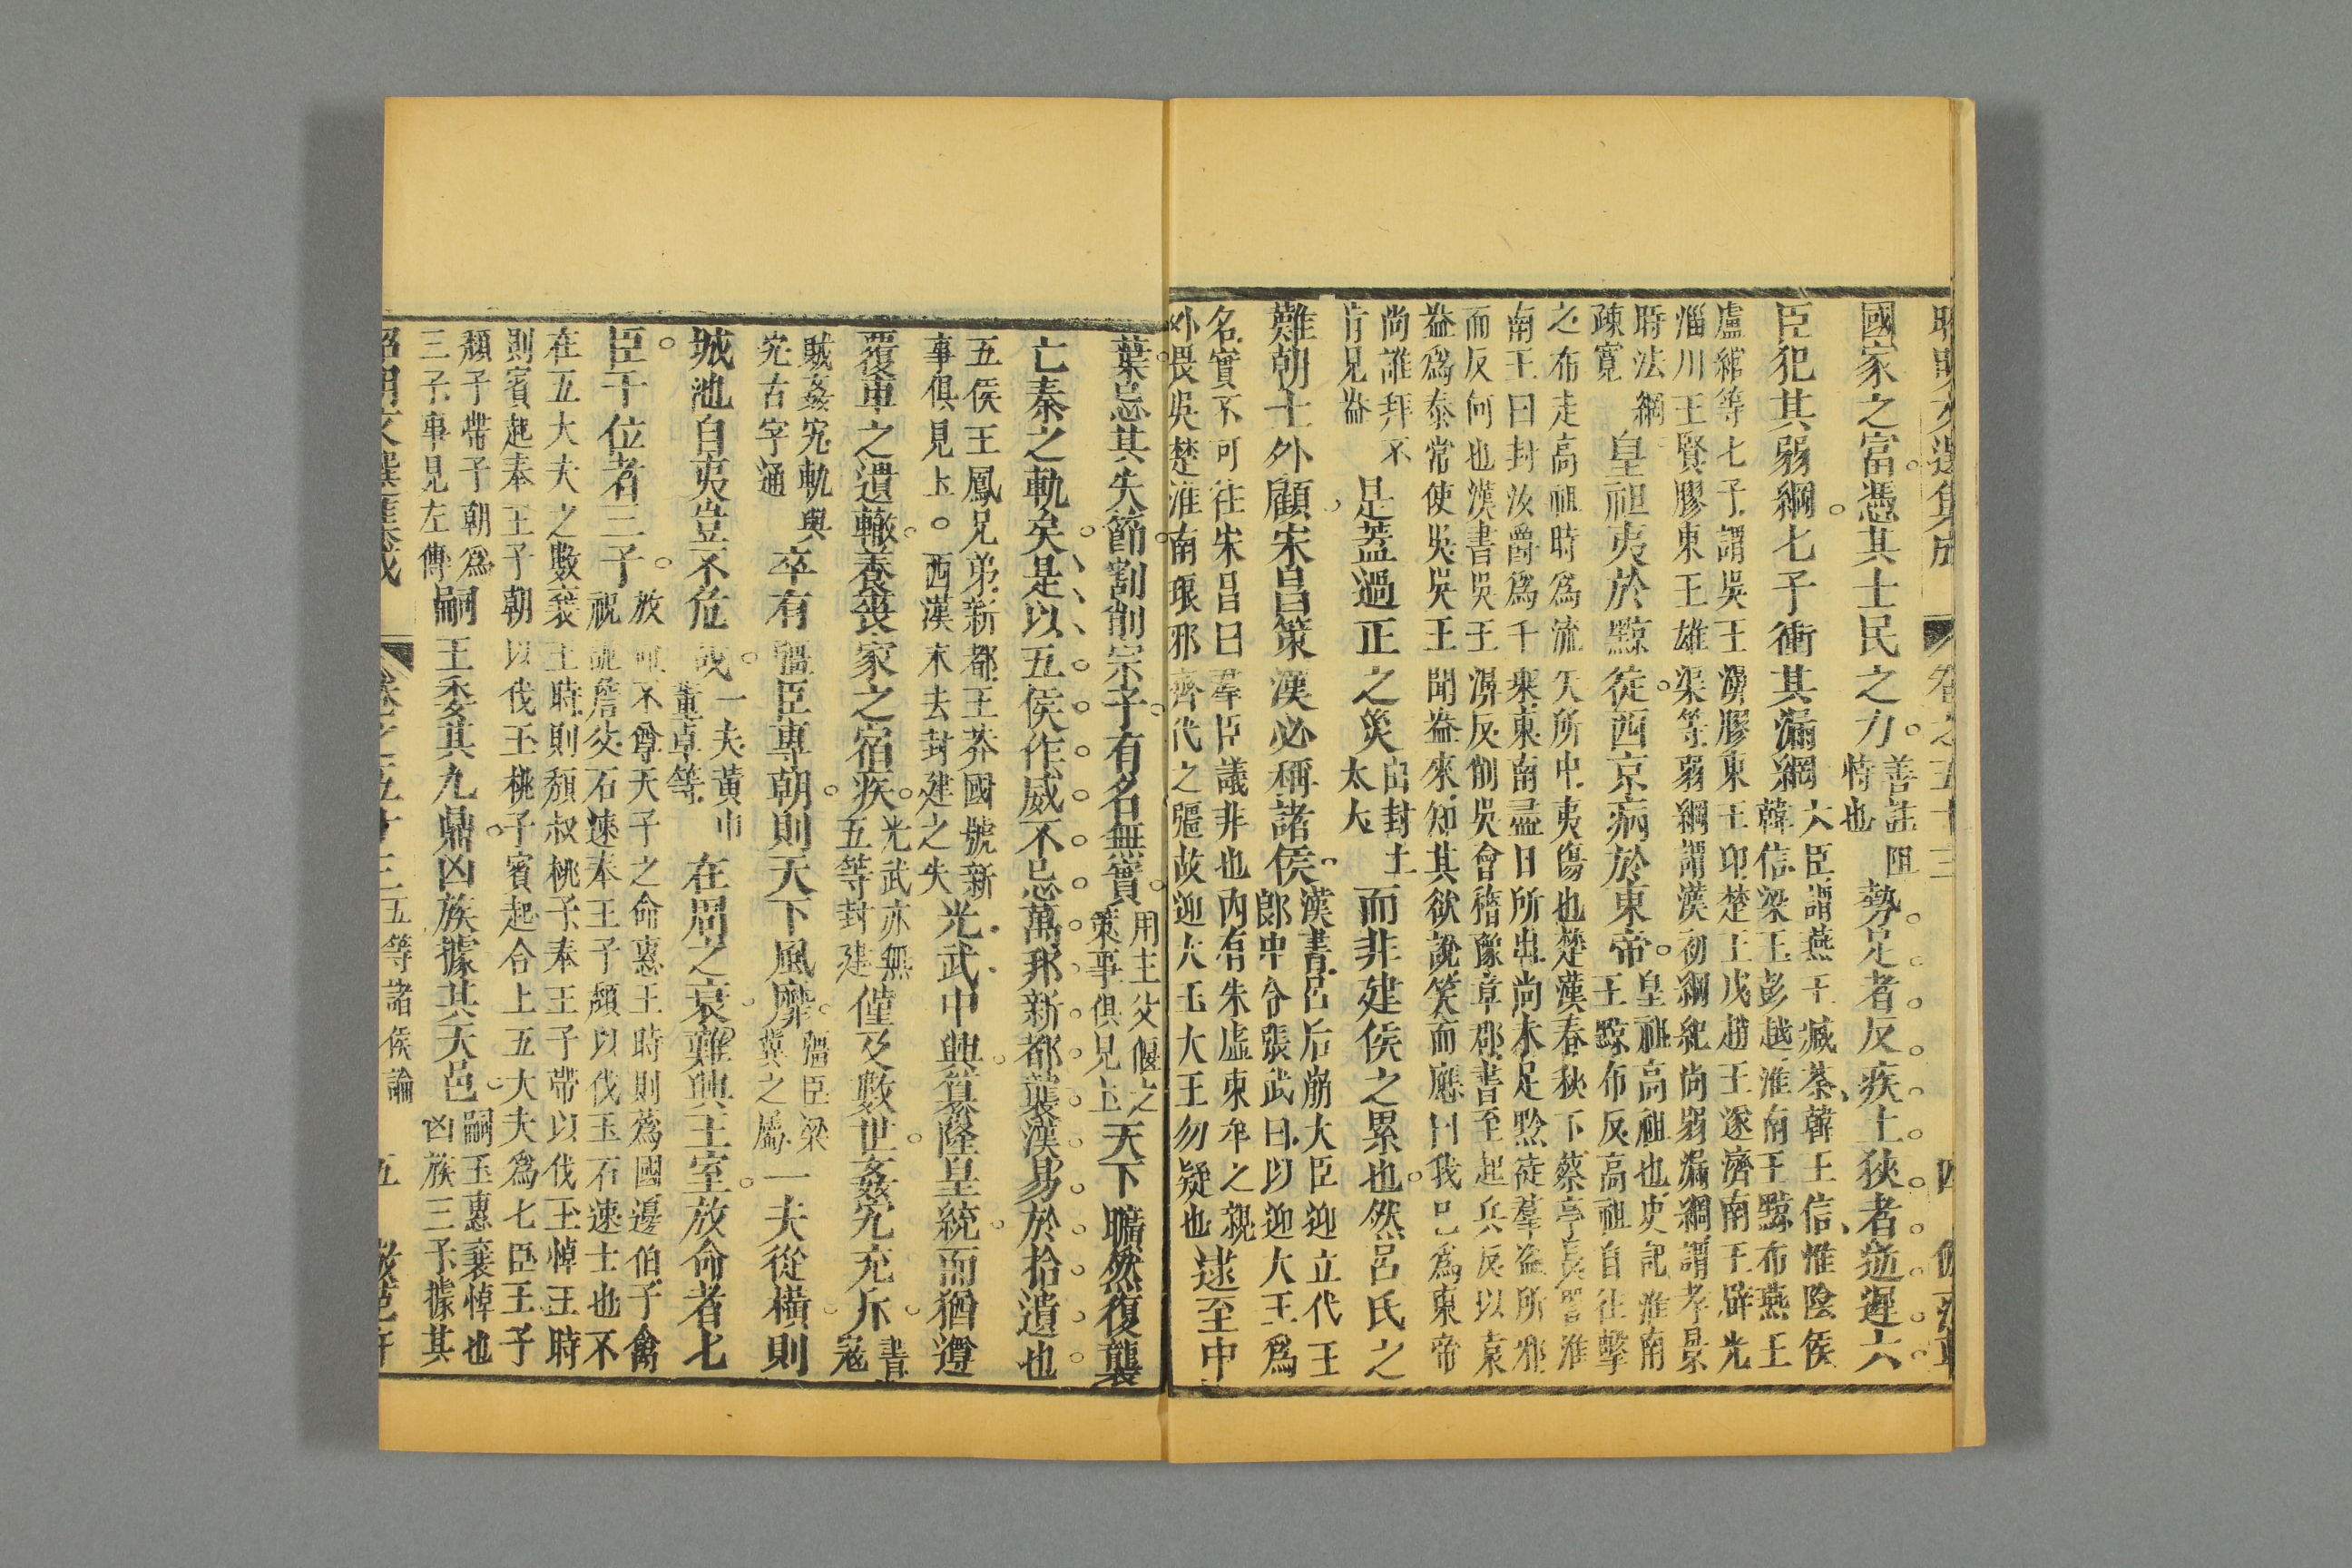 昭明文選集成 卷之五十三 四
國家之富憑其士民之力
善註阻
恃也
勢足者反疾土狹者逆遲六
臣犯其弱綱七子衝其漏網
大臣謂燕王臧荼韓王信淮陰侯
韓信梁王彭越淮南王黥布燕王
盧綰等七子謂吳王濞膠東王卬楚王戊趙王遂濟南王辟光
淄川王賢膠東王雄渠等弱綱謂漢初綱紀尚弱漏網謂孝景
時法網
疎寬
皇祖夷於黥徒西京病於東帝
皇祖高祖也史記淮南
王黥布反高祖自往擊
之布走高祖時爲流矢所中夷傷也楚漢春秋下蔡亭長詈淮
南王曰封汝爵爲千乘東南盡日所出尚未足黥徒羣盜所邪
而反何也漢書吳王濞反削吳會稽豫章郡書至起兵反以袁
盎爲泰常使吳吳王聞盎來知其欲說笑而應曰我已爲東帝
尚誰拜不
肯見盎
是蓋過正之災
由封土
太大
而非建侯之累也然呂氏之
難朝士外顧宋昌策漢必稱諸侯
漢書呂后崩大臣迎立代王
郎中令張武曰以迎大王爲
名實不可往宋昌曰羣臣議非也内有朱虛東牟之親
外畏吳楚淮南琅邪齊代之彊故迎大王大王勿疑也
逮至中
葉忌其失節割削宗子有名無實
用主父偃之
策事俱見上
天下曠然復襲
亡秦之軌矣是以五侯作威不忌萬邦新都襲漢易於拾遺也
五侯王鳳兄弟新都王莽國號新
事俱見上。西漢末去封建之失
光武中興纂隆皇統而猶遵
覆車之遺轍養喪家之宿疾
光武亦無
五等封建
僅及數世姦宄充斥
書寇
賊姦宄軌與
宄古字通
卒有彊臣專朝則天下風靡
彊臣梁
冀之屬
一夫從横則
城池自夷豈不危哉
一夫黄巾
董卓等
在周之衰難興王室放命者七
臣干位者三子
放命不尊天子之命惠王時則蔿國邊伯子禽
祝詭詹父石速奉王子頹以伐王石速士也不
在五大夫之數襄王時則頹叔桃子奉王子帶以伐王悼王時
則賓起奉王子朝以伐王桃子賓起合上五大夫爲七臣王子
頹子帶子朝爲
三子事見左傳
嗣王委其九鼎凶族據其天邑
嗣王惠襄悼也
凶族三子據其
昭明文選集成 卷之五十三 五等諸侯論 五